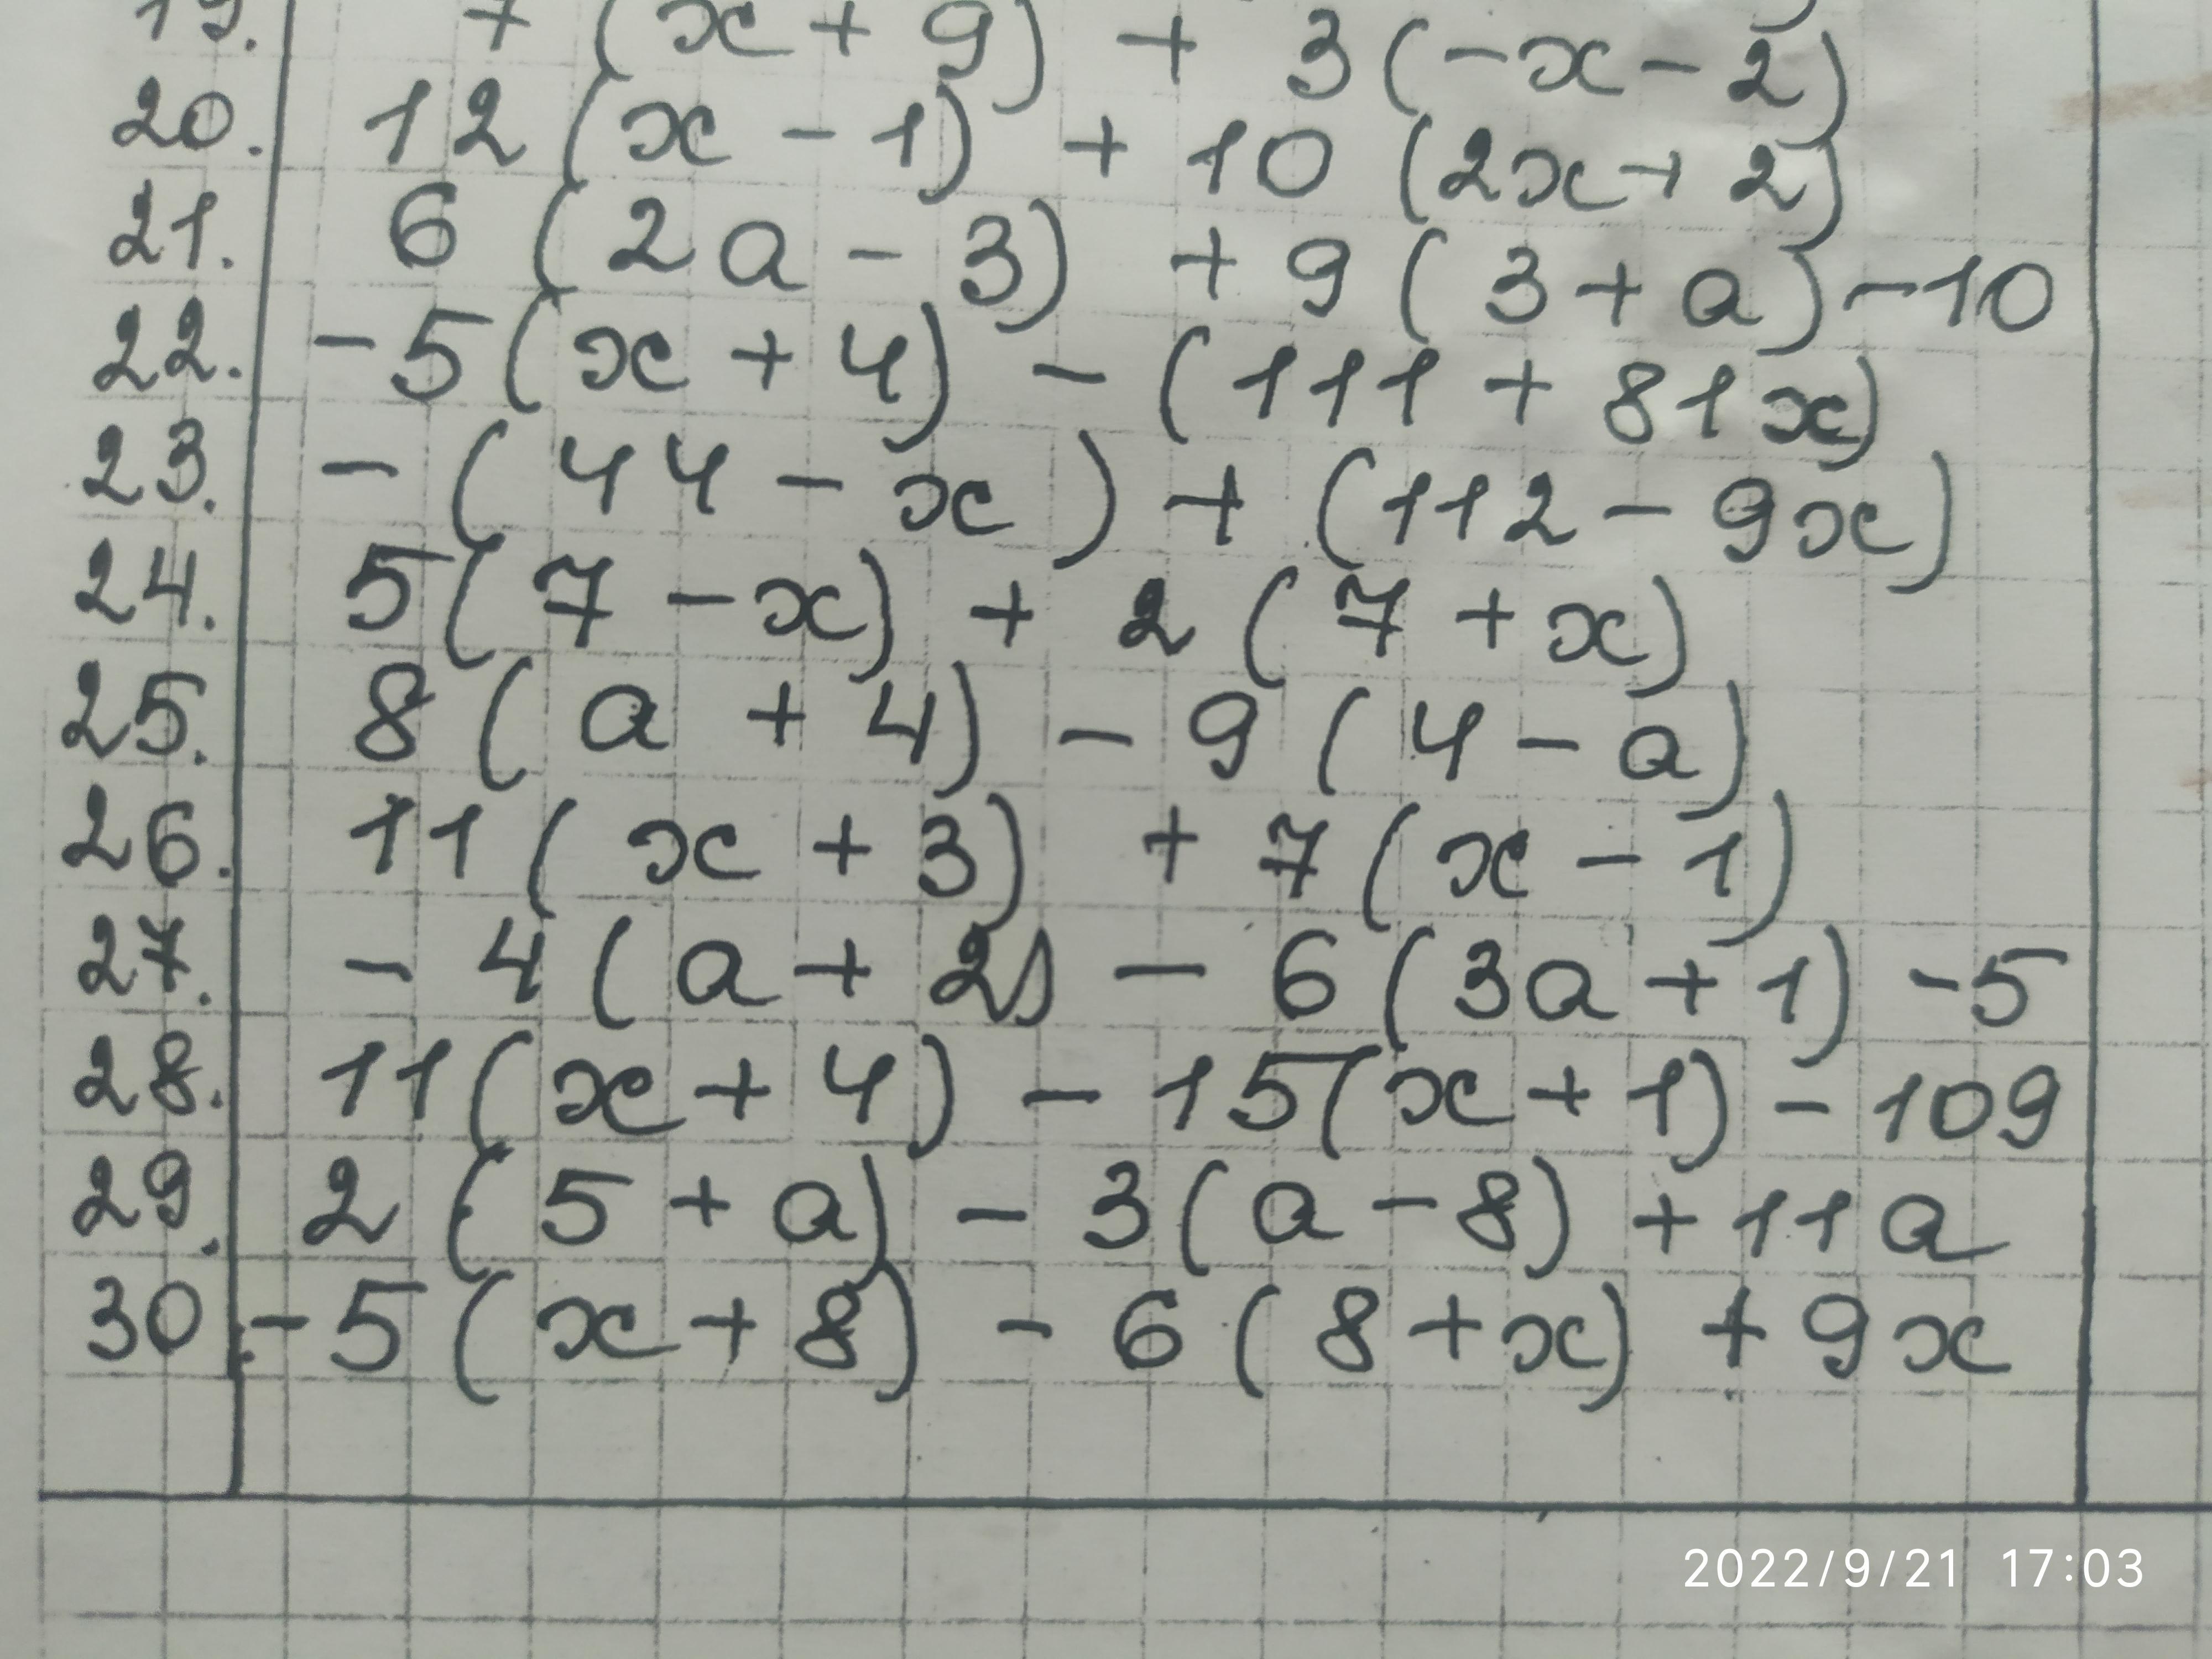 19. 7 (x + 9) + 3 (-x - 2)
20. 12 (x - 1) + 10 (2x + 2)
21. 6 (2a - 3) + 9 (3 + a) - 10
22. -5 (x + 4) - (111 + 81x)
23. - (44 - x) + (112 - 9x)
24. 5 (7 - x) + 2 (7 + x)
25. 8 (a + 4) - 9 (4 - a)
26. 11 (x + 3) + 7 (x - 1)
27. - 4 (a + 2) - 6 (3a + 1) - 5
28. 11 (x + 4) - 15 (x + 1) - 109
29. 2 (5 + a) - 3 (a - 8) + 11a
30. -5 (x + 8) - 6 (8 + x) + 9x
2022/9/21 17:03